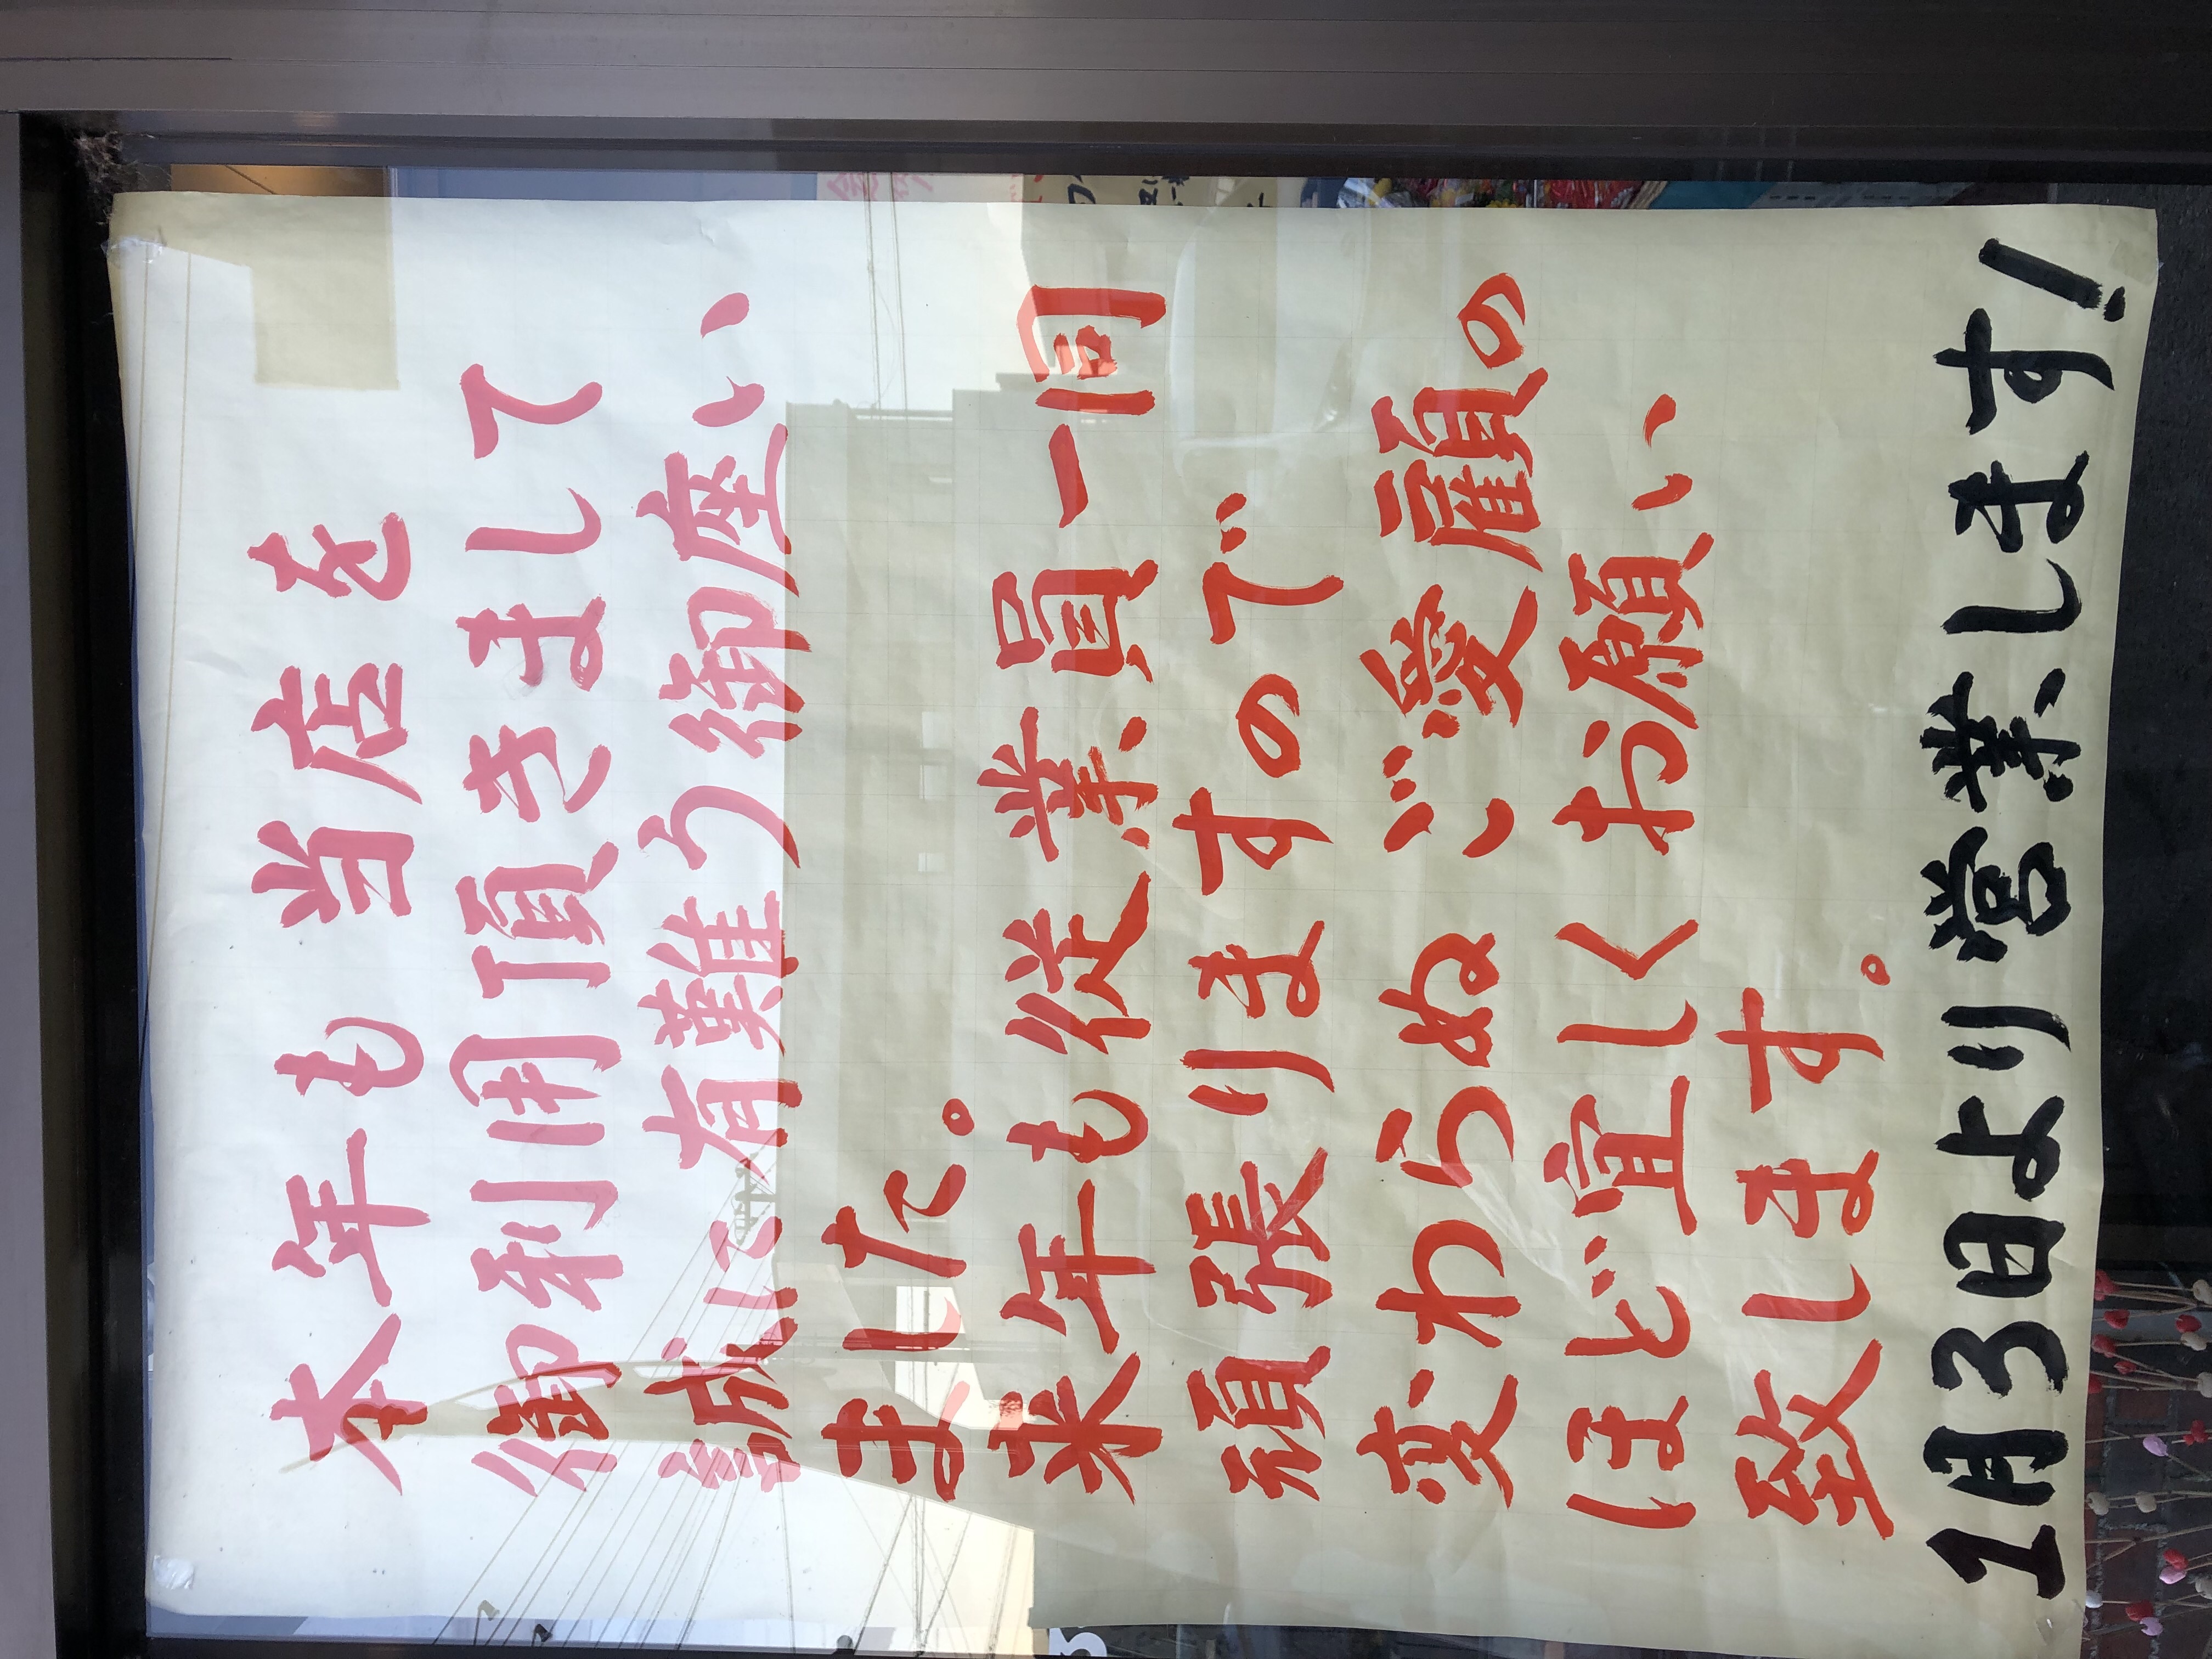 本年も 当店を
御利用頂きまして
誠に有難う御座い
ました。
来年も従業員一同
頑張りますので
変わらぬご愛顧の
ほど宜しくお願い
致します。
1月3日より営業します!